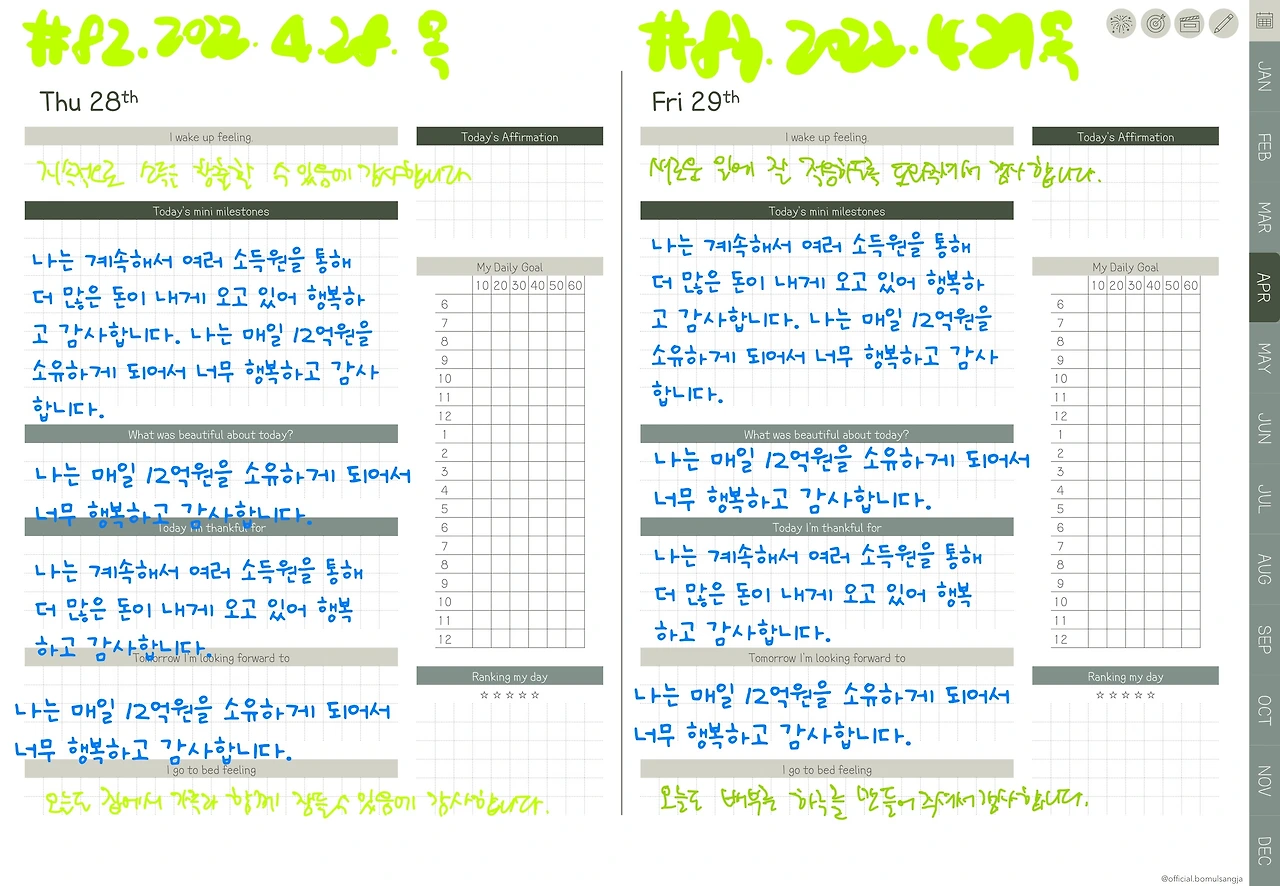 #82. 2022. 4. 28. 목
Thu 28th
I wake up feeling.
지속적으로 소득을 창출할 수 있음에 감사합니다
Today's mini milestones
나는 계속해서 여러 소득원을 통해
더 많은 돈이 내게 오고 있어 행복하
고 감사합니다. 나는 매일 12억원을
소유하게 되어서 너무 행복하고 감사
합니다.
What was beautiful about today?
나는 매일 12억원을 소유하게 되어서
너무 행복하고 감사합니다.
Today I'm thankful for
나는 계속해서 여러 소득원을 통해
더 많은 돈이 내게 오고 있어 행복
하고 감사합니다.
Tomorrow I'm looking forward to
나는 매일 12억원을 소유하게 되어서
너무 행복하고 감사합니다.
I go to bed feeling
오늘도 집에서 가족과 함께 잠들 수 있음에 감사합니다.
Today's Affirmation
My Daily Goal
10 20 30 40 50 60
6
7
8
9
10
11
12
1
2
3
4
5
6
7
8
9
10
11
12
Ranking my day
☆☆☆☆☆
#83. 2022. 4 29 목
Fri 29th
I wake up feeling.
새로운 일에 잘 적응하도록 도와주셔서 감사합니다.
Today's mini milestones
나는 계속해서 여러 소득원을 통해
더 많은 돈이 내게 오고 있어 행복하
고 감사합니다. 나는 매일 12억원을
소유하게 되어서 너무 행복하고 감사
합니다.
What was beautiful about today?
나는 매일 12억원을 소유하게 되어서
너무 행복하고 감사합니다.
Today I'm thankful for
나는 계속해서 여러 소득원을 통해
더 많은 돈이 내게 오고 있어 행복
하고 감사합니다.
Tomorrow I'm looking forward to
나는 매일 12억원을 소유하게 되어서
너무 행복하고 감사합니다.
I go to bed feeling
오늘도 배부른 하루를 만들어 주셔서 감사합니다.
Today's Affirmation
My Daily Goal
10 20 30 40 50 60
6
7
8
9
10
11
12
1
2
3
4
5
6
7
8
9
10
11
12
Ranking my day
☆☆☆☆☆
JAN
FEB
MAR
APR
MAY
JUN
JUL
AUG
SEP
OCT
NOV
DEC
@official.bomulsangja